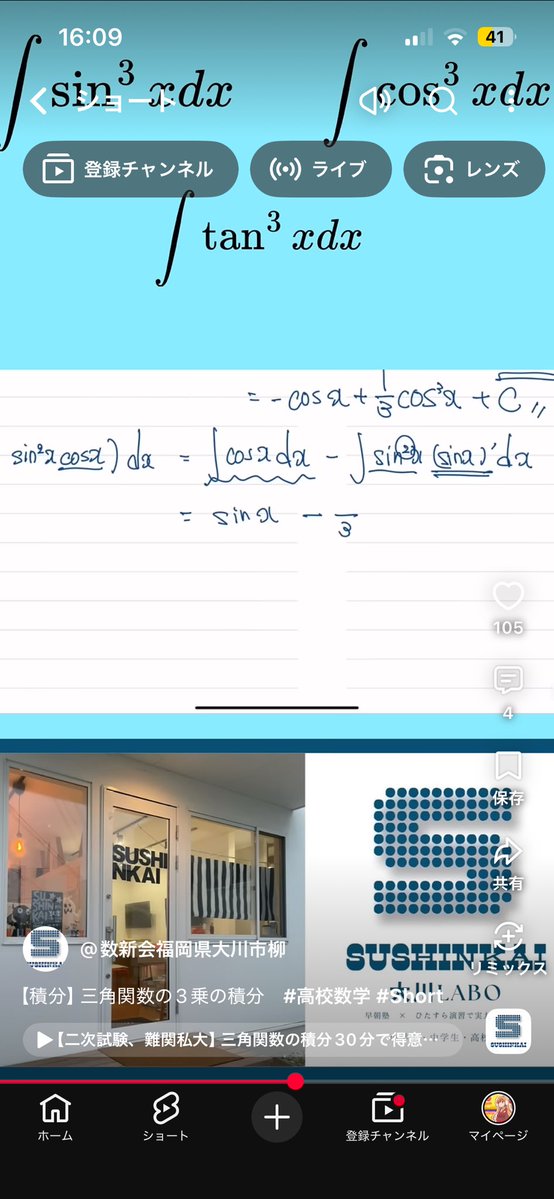 16:09
41
∫ sin³ xdx
∫ cos³ xdx
ショート
登録チャンネル
ライブ
レンズ
∫ tan³ xdx
= - cosx + 1/3 cos³x + C //
sin²x cosx) dx = ∫cosx dx - ∫sin²x (sinx)' dx
= sinx - ─/3
105
4
保存
共有
リミックス
SUSHI
NKAI
SUSHINKAI
LABO
早朝塾 × ひたすら演習で実
中学生・高校
@数新会福岡県大川市柳
【積分】三角関数の３乗の積分 #高校数学 #Short
【二次試験、難関私大】三角関数の積分30分で得意…
SUSHINKAI
ホーム
ショート
登録チャンネル
マイページ